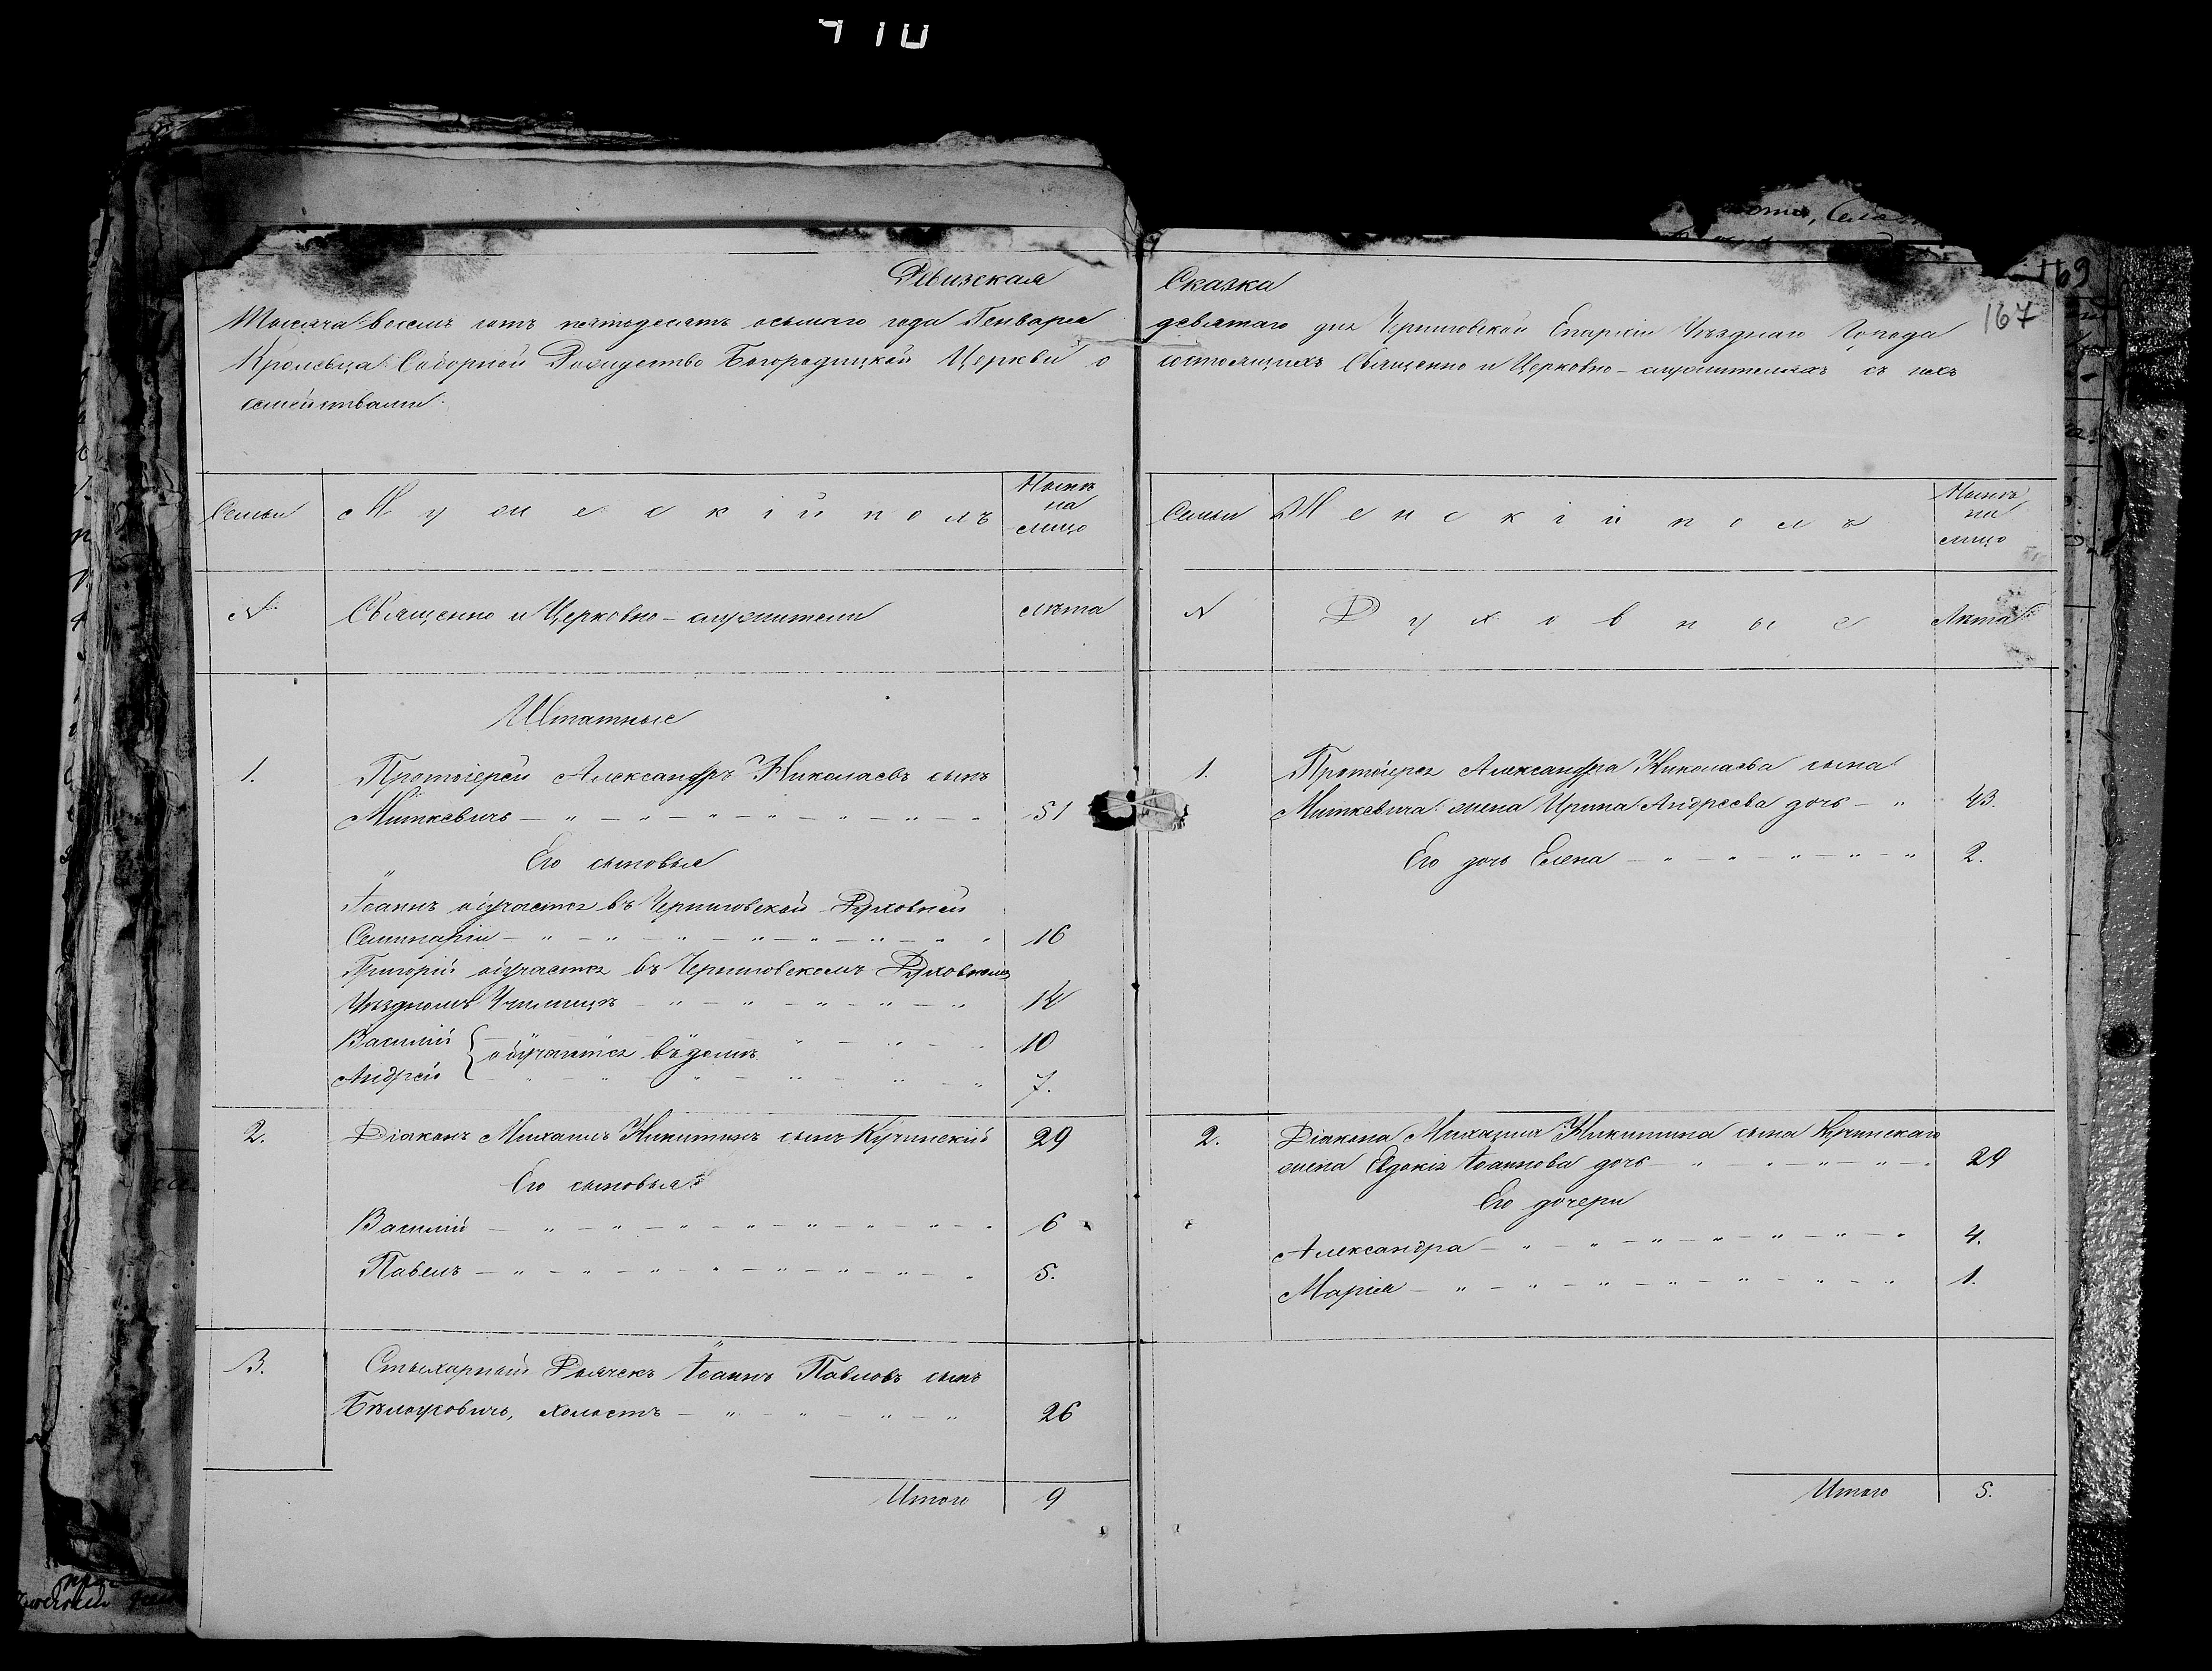 410
Ревизская Сказка
169
167
Тысяча восемь сотъ пятьдесятъ осьмаго года Генваря девятаго дня Черниговской Епархіи Уѣзднаго Города
Кролевца Соборной Рождество Богородицкой Церкви о состоящихъ Священно и Церковно-служителяхъ съ ихъ
семействами.
Семьи
Мужескій полъ
Нынѣ
на
лицо
№
Священно и Церковно-служители
лѣта
Штатные
1.
Протоіерей Александръ Николаевъ сынъ
Миткевичъ 51
Его сыновья
Іоаннъ обучается въ Черниговской Духовной
Семинаріи 16
Григорій обучается въ Черниговскомъ Духовномъ
Уѣздномъ Училищѣ 14
Василій 10
обучаются въ домѣ
Андрей 7.
2. Діаконъ Михаилъ Никитинъ сынъ Кучинскій 29
Его сыновья
Василій 6
Павелъ 5.
3. Стихарный Дьячекъ Іоаннъ Павловъ сынъ
холостъ 26
Итого 9
Семьи
Женскій полъ
Нынѣ
на
лицо
№
Духовные
Лѣта
1. Протоіерея Александра Николаева сына
Миткевича жена Ирина Андреева дочь 43.
Его дочь Елена 2.
2. Діакона Михаила Никитина сына Кучинскаго
жена Евдокія Іоаннова дочь 29
Его дочери
Александра 4.
Марія 1.
Итого 5.